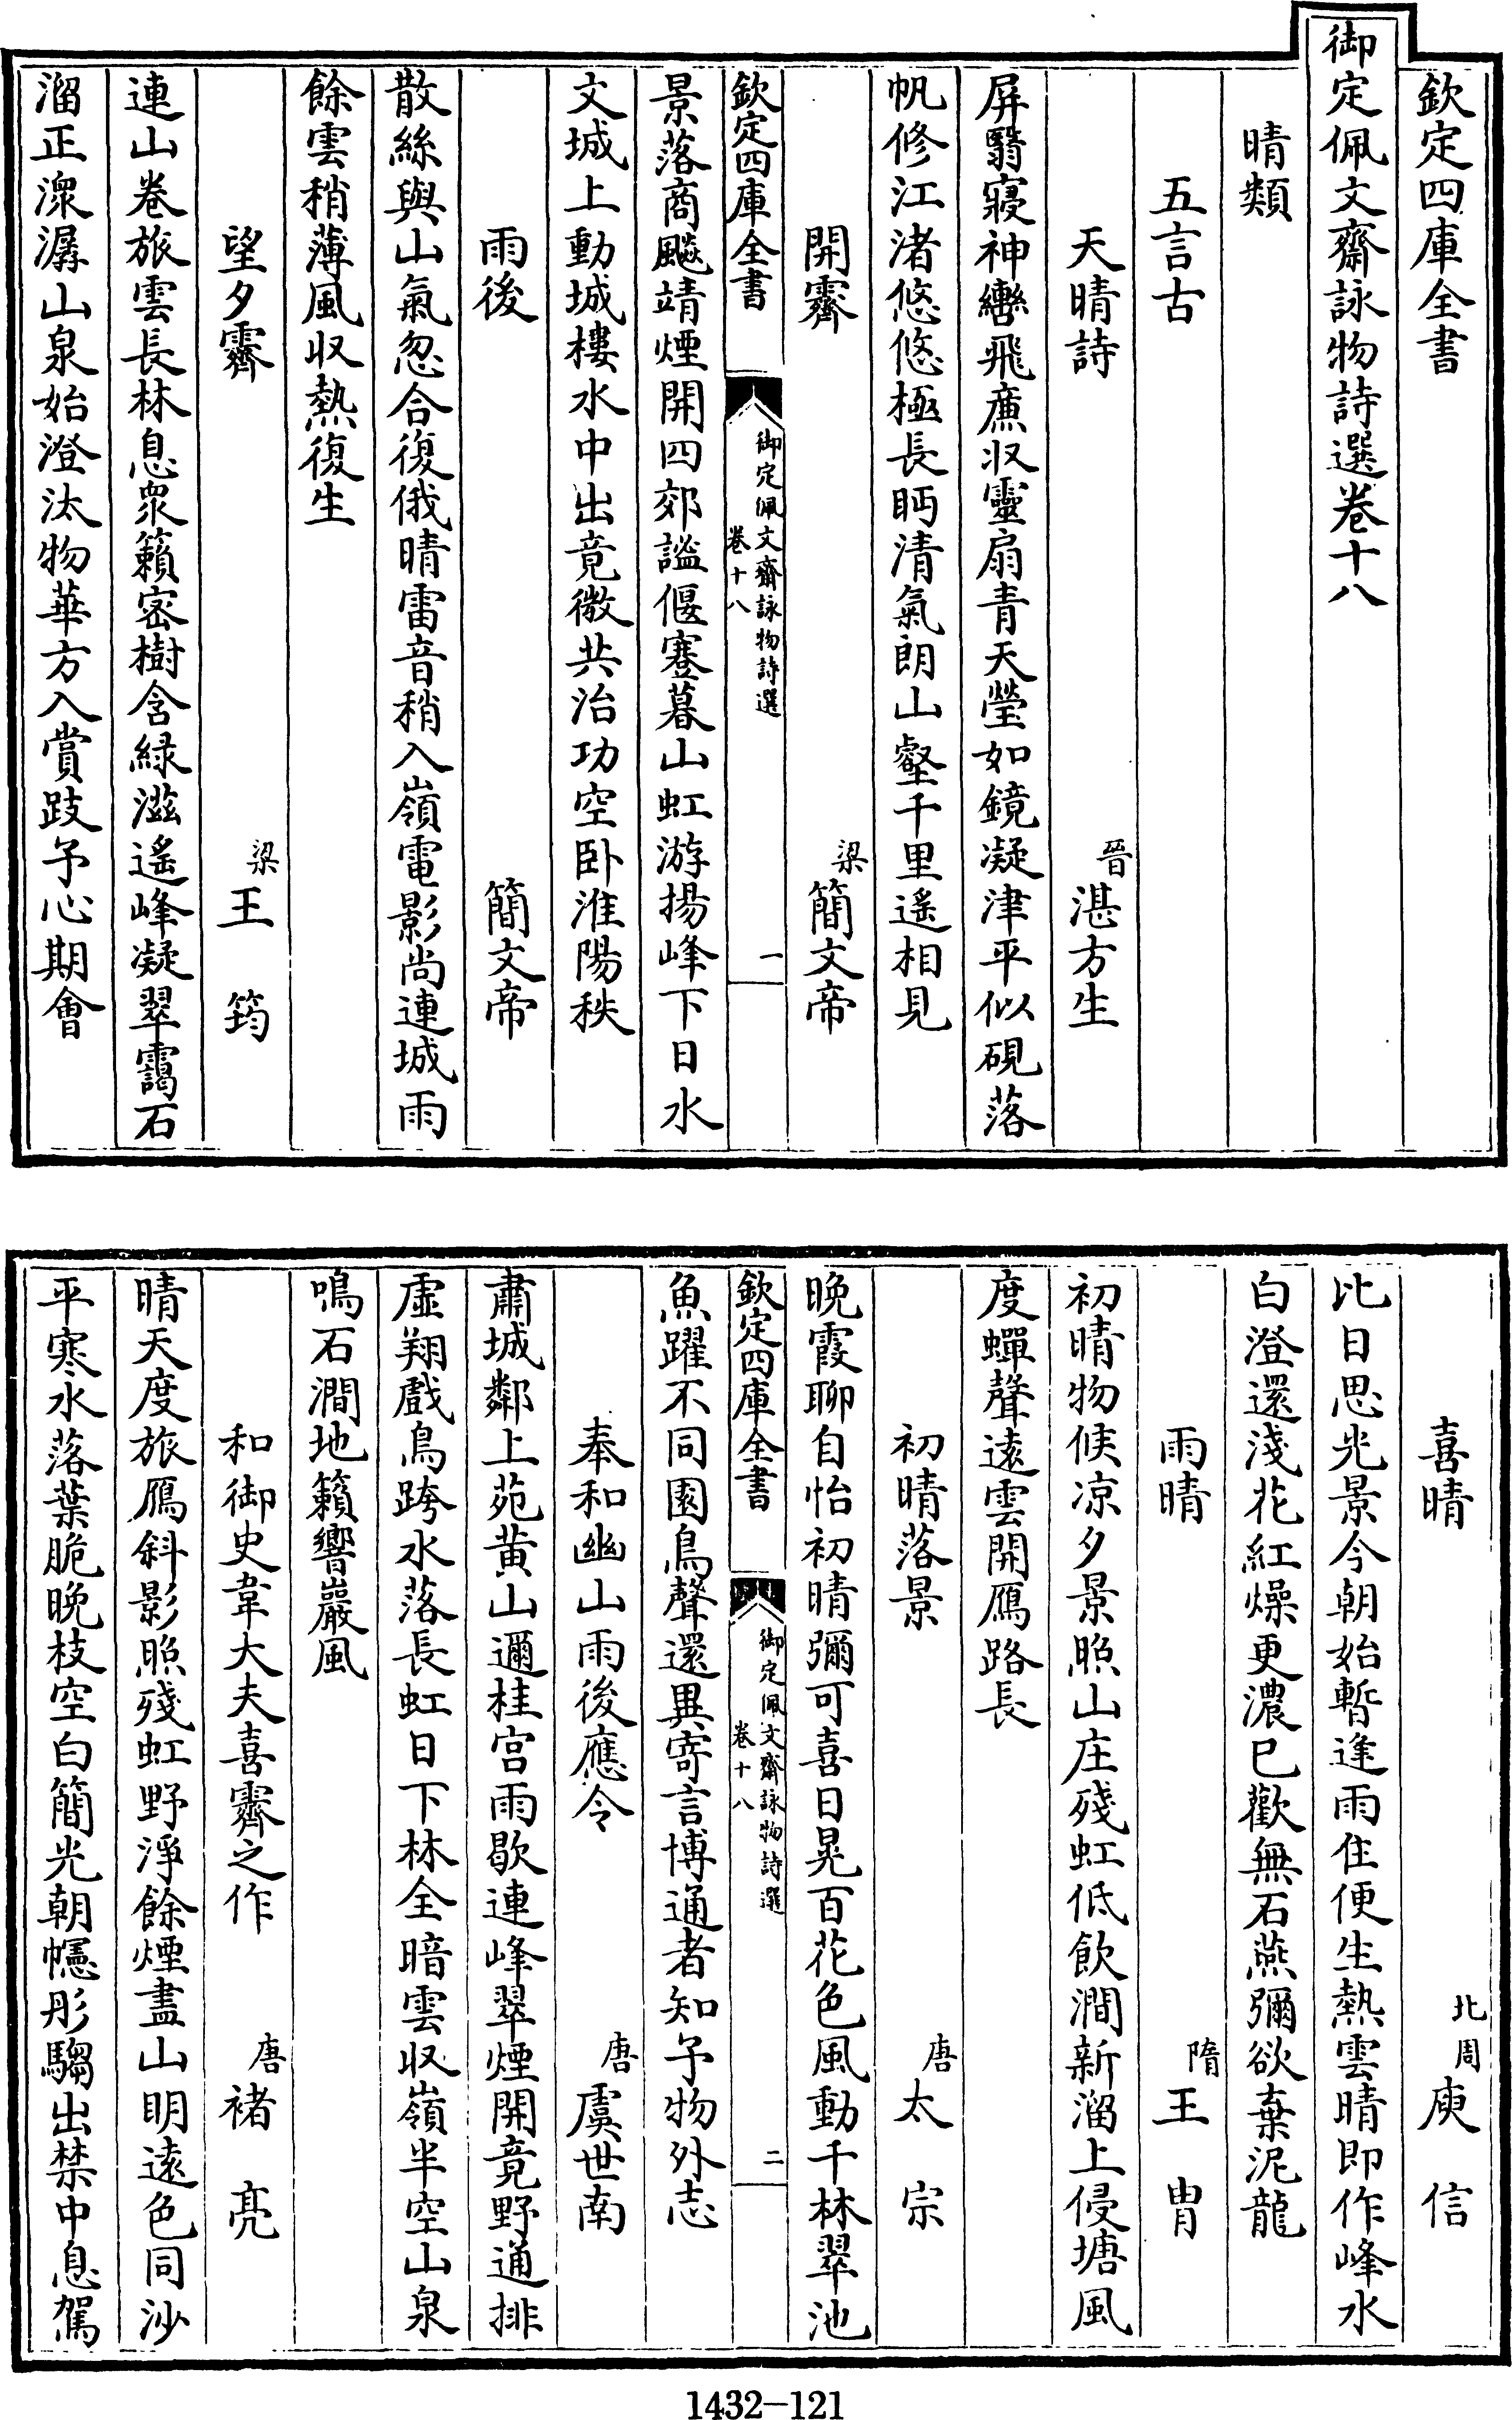 欽定四庫全書
御定佩文齋詠物詩選卷十八
晴類
五言古
天晴詩 晉湛方生
屏翳寢神轡飛廉収靈扇青天瑩如鏡凝津平似硯落
帆修江渚悠悠極長眄清氣朗山壑千里遥相見
開霽 梁簡文帝
欽定四庫全書 御定佩文齋詠物詩選 卷十八 一
景落商飈靖煙開四郊謐偃蹇暮山虹游揚峰下日水
文城上動城樓水中出竟微共治功空卧淮陽秩
雨後 簡文帝
散絲與山氣忽合復俄晴雷音稍入嶺電影尚連城雨
餘雲稍薄風収熱復生
望夕霽 梁王筠
連山卷旅雲長林息衆籟密樹含緑滋遥峰凝翠靄石
溜正潨潺山泉始澄汰物華方入賞跂予心期會
喜晴 北周庾信
比日思光景今朝始暫逢雨住便生熱雲晴即作峰水
白澄還淺花紅燥更濃已歡無石燕彌欲棄泥龍
雨晴 隋王胄
初晴物候凉夕景照山庄殘虹低飲澗新溜上侵塘風
度蟬聲遠雲開鴈路長
初晴落景 唐太宗
晚霞聊自怡初晴彌可喜日晃百花色風動千林翠池
欽定四庫全書 御定佩文齋詠物詩選 卷十八 二
魚躍不同園鳥聲還異寄言博通者知予物外志
奉和幽山雨後應令 唐虞世南
肅城鄰上苑黄山邇桂宫雨歇連峰翠煙開竟野通排
虚翔戲鳥跨水落長虹日下林全暗雲収嶺半空山泉
鳴石澗地籟響巖風
和御史韋大夫喜霽之作 唐褚亮
晴天度旅鴈斜影照殘虹野淨餘煙盡山明遠色同沙
平寒水落葉脆晚枝空白簡光朝幰彤騶出禁中息駕
1432-121